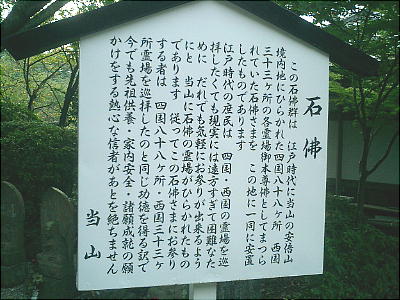 石佛
この石佛群は 江戸時代に当山の安倍山
境内地にひらかれた四国八十八ヶ所 西国
三十三ヶ所の各霊場御本尊佛としてまつら
れていた石佛さまを この地に一同に安置
したものであります
江戸時代の庶民は 四国・西国の霊場を巡
拝したくても現実には遠方すぎて困難なた
めに だれでも気軽にお参りが出来るよう
にと 当山に石佛の霊場がひらかれたもの
であります 従ってこの石佛さまにお参り
する者は 四国八十八ヶ所・西国三十三ヶ
所霊場を巡拝したのと同じ功徳を得る訳で
今でも先祖供養・家内安全・諸願成就の願
かけをする熱心な信者があとを絶ちません
当山